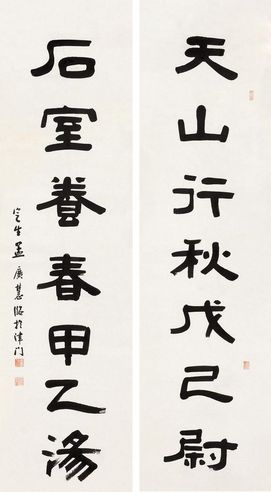 天山行秋戊己尉
石室養春甲乙湯
定生孟廣慧臨於津门